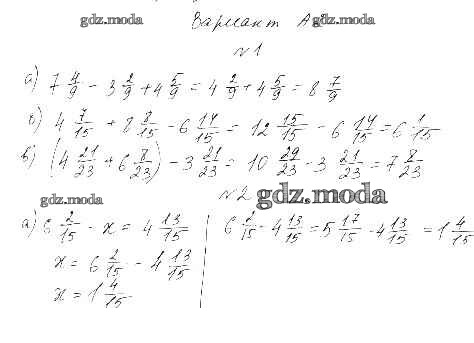 gdz.moda Вариант А gdz.moda
№1
а) 7 4/9 - 3 2/9 + 4 5/9 = 4 2/9 + 4 5/9 = 8 7/9
б) 4 7/15 + 8 8/15 - 6 14/15 = 12 15/15 - 6 14/15 = 6 1/15
в) (4 21/23 + 6 8/23) - 3 21/23 = 10 29/23 - 3 21/23 = 7 8/23
gdz.moda №2 gdz.moda
а) 6 2/15 - x = 4 13/15
x = 6 2/15 - 4 13/15
x = 1 4/15
6 2/15 - 4 13/15 = 5 17/15 - 4 13/15 = 1 4/15